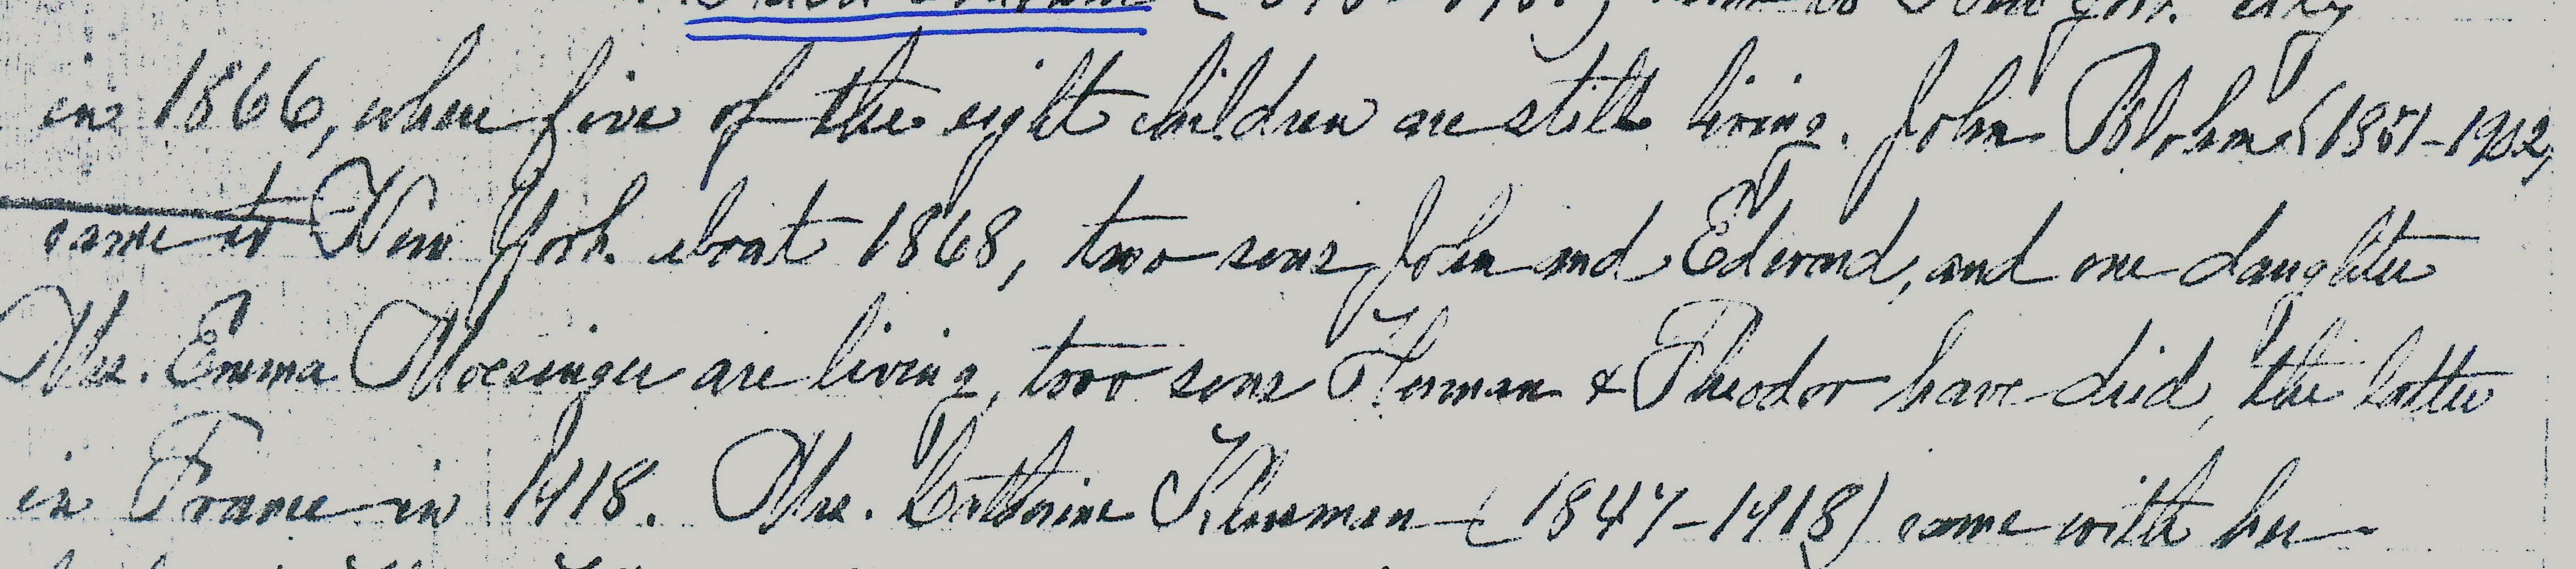 New York City
in 1866, where five of the eight children are still living. John Blohm (1851-1902,
came to New York about 1868, two sons, John and Edward, and one daughter
Mrs. Emma Moesinger are living, two sons Herman & Theodor have died, the latter
in France in 1918. Mrs. Catherine Klusman (1847-1918) came with her